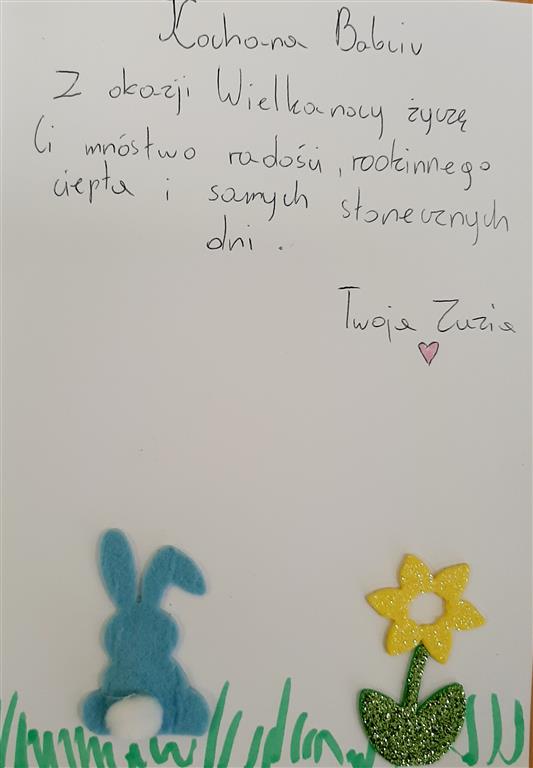 Kochana Babciu
Z okazji Wielkanocy życzę
Ci mnóstwo radości, rodzinnego
ciepła i samych słonecznych
dni.
Twoja Zuzia